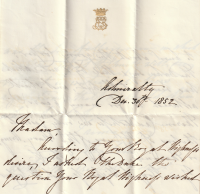 Admiralty
Dec. 30th 1852.
Madam,
According to Your Royal Highness'
desire, I asked the Duke the
question Your Royal Highness wished